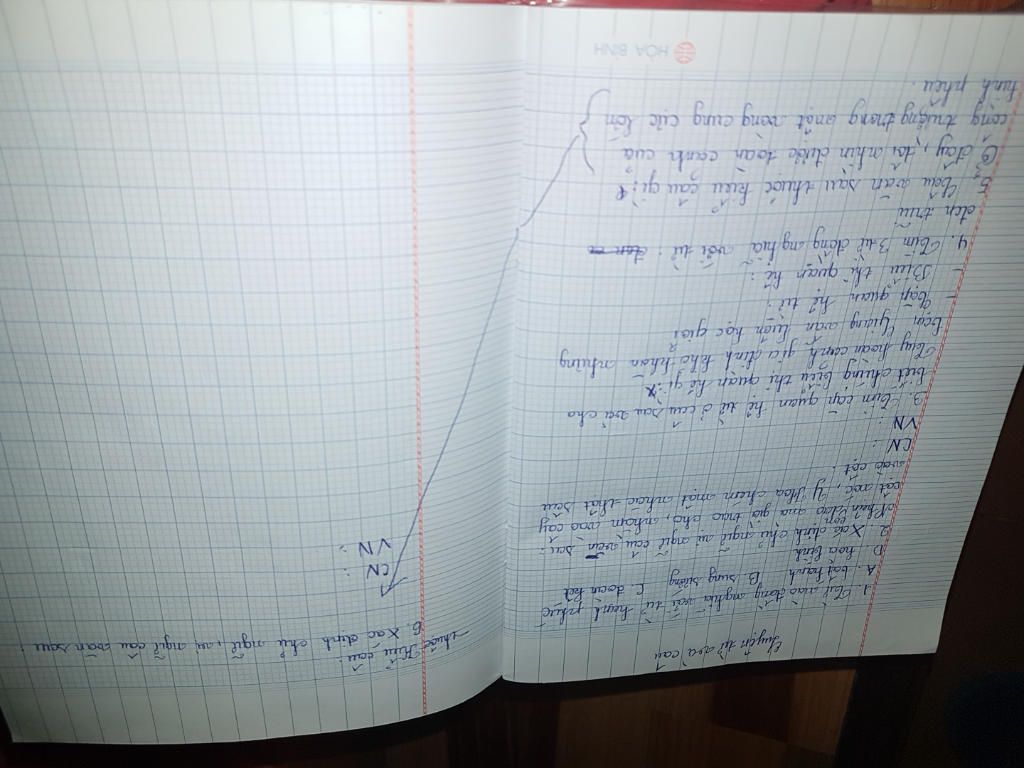 Luyện từ và câu
1. Từ nào đồng nghĩa với từ hạnh phúc
A. bất hạnh B. sung sướng C. đoàn kết
D. hòa bình
2. Xác định chủ ngữ vị ngữ câu văn sau:
Nhận con dao mà già trao cho, nhằm vào cây
cột nóc, Y Hoa chém một nhát thật sâu
vào cột.
CN :
VN :
3. Tìm cặp quan hệ từ ở câu sau và cho
biết chúng biểu thị quan hệ gì?
Tuy hoàn cảnh gia đình khó khăn nhưng
bạn Giang vẫn luôn học giỏi
- Cặp quan hệ từ :
- Biểu thị quan hệ :
4. Tìm 3 từ đồng nghĩa với từ :
đen trũi
5. Câu văn sau thuộc kiểu câu gì?
Ở đây, tôi nhìn được toàn cảnh của
công trường trong một vòng cung cực lớn
hình phễu.
thuộc Kiểu câu:
6. Xác định chủ ngữ, vị ngữ câu văn sau:
CN :
VN :
HÒA BÌNH